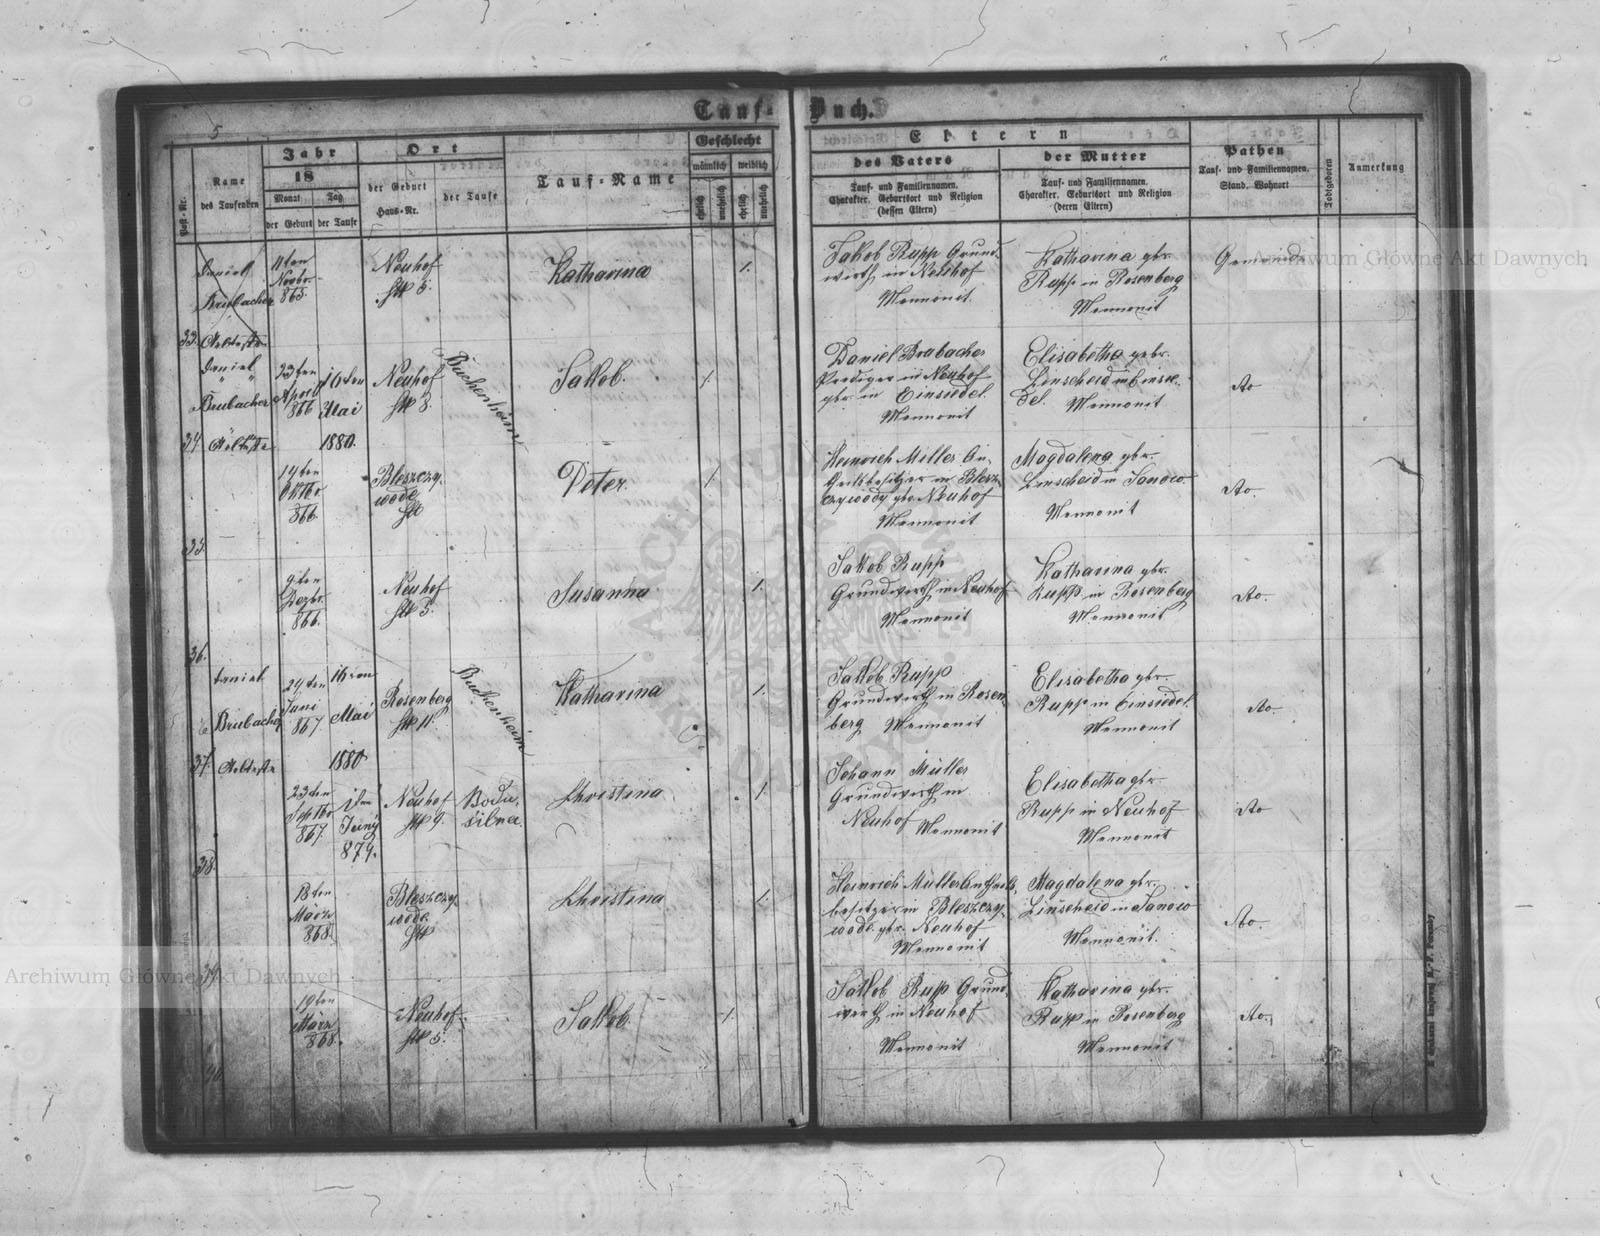 Tauf-Buch.
5
Post-Nr.
Name
des Taufenden
Jahr
18
Monat
der Geburt
Tag
der Taufe
Ort
der Geburt
Haus-Nr.
der Taufe
Tauf-Name
Geschlecht
männlich
weiblich
ehelich
unehelich
ehelich
unehelich
Eltern
des Vaters
Tauf- und Familiennamen.
Charakter, Geburtsort und Religion
(dessen Eltern)
der Mutter
Tauf- und Familiennamen.
Charakter, Geburtsort und Religion
(deren Eltern)
Pathen
Tauf- und Familiennamen.
Stand, Wohnort
Todtgeboren
Anmerkung
Daniel
Brubacher
11ten
Novbr.
865.
Neuhof
5.
Katharina
1.
Jakob Rupp Grund
wirth in Neuhof
Mennonit
Katharina gbr.
Rupp in Rosenberg
Mennonit
Gemeinde
33.
Daniel
Brubacher
23ten
April
866
16ten
Mai
1880
Neuhof
8.
Buchenheim
Jakob.
1.
Daniel Brubacher
Prediger in Neuhof
gbr. in Einsiedel.
Mennonit
Elisabetha gebr.
Linscheid in Einsie-
del. Mennonit
do
34.
19ten
Oktbr
866.
Bleszczy-
wode
Peter
1
Heinrich Miller An-
theilsbesitzer in Blesz-
czywody gbr. Neuhof
Mennonit
Magdalena gbr.
Linscheid in Janow
Mennonit
do.
35.
9ten
Dezbr.
866.
Neuhof
5.
Susanna
1.
Jakob Rupp
Grundwirth in Neuhof
Mennonit
Katharina gbr.
Rupp in Rosenberg
Mennonit
do.
36.
Daniel
Brubacher
24ten
Juni
867.
16ten
Mai
1880
Rosenberg
Buchenheim
Katharina
1.
Jakob Rupp
Grundwirth in Rosen-
berg Mennonit
Elisabetha gbr.
Rupp in Einsiedel.
Mennonit
do
37.
23ten
Septbr
867.
Juny
879.
Neuhof
9.
Christina
1.
Johann Müller
Grundwirth in
Neuhof Mennonit
Elisabetha gbr.
Rupp in Neuhof
Mennonit
do
38.
18ten
März
868.
Bleszczy-
wode
Christina
1.
Heinrich Müller Antheils-
besitzer in Bleszczy-
wode gbr. Neuhof
Mennonit
Magdalena gbr.
Linscheid in Janow
Mennonit.
do.
39.
19ten
März
868.
Neuhof
5.
Jakob
1.
Jakob Rupp Grund-
wirth in Neuhof
Mennonit
Katharina gbr.
Rupp in Rosenberg
Mennonit
do.
Archiwum Główne Akt Dawnych
Archiwum Główne Akt Dawnych